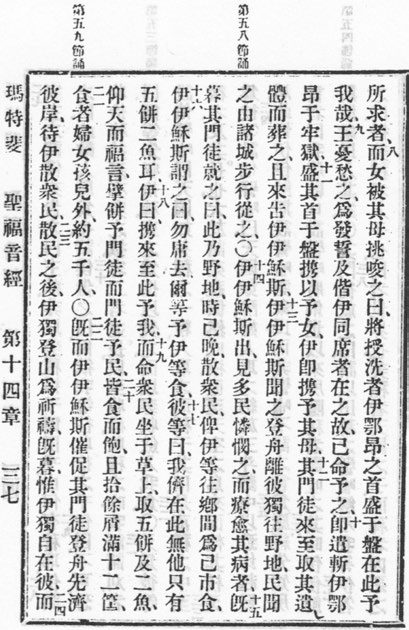 第五八節誦
第五九節誦
所求者、八而女被其母挑唆之曰、將授洗者伊鄂昂之首盛于盤在此予
我哉、九王憂愁之、爲發誓及偕伊同席者在之故、已命予之、十卽遣斬伊鄂
昂于牢獄、十一盛其首于盤、攜以予女、伊卽攜予其母、十二其門徒來至、取其遺
體而葬之、且來告伊伊穌斯、十三伊伊穌斯聞之、登舟離彼、獨往野地、民聞
之、由諸城步行從之、○十四伊伊穌斯出、見多民、憐憫之、而療愈其病者、十五旣
暮、其門徒就之曰、此乃野地、時已晚、散衆民、俾伊等往鄉間爲己市食、
十六伊伊穌斯謂之曰、勿庸去、爾等予伊等食、十七彼等曰、我儕在此無他、只有
五餅二魚耳、十八伊曰、攜來至此予我、十九而命衆民坐于草上、取五餅及二魚、
仰天而福言、擘餅予門徒、而門徒予民、二十皆食而飽、且拾餘屑、滿十二筐、
二一食者婦女孩兒外約五千人、○二二旣而伊伊穌斯催促其門徒登舟先濟
彼岸、待伊散衆民、二三散民之後、伊獨登山爲祈禱、旣暮、惟伊獨自在彼、二四而
瑪特斐 聖福音經 第十四章 三七